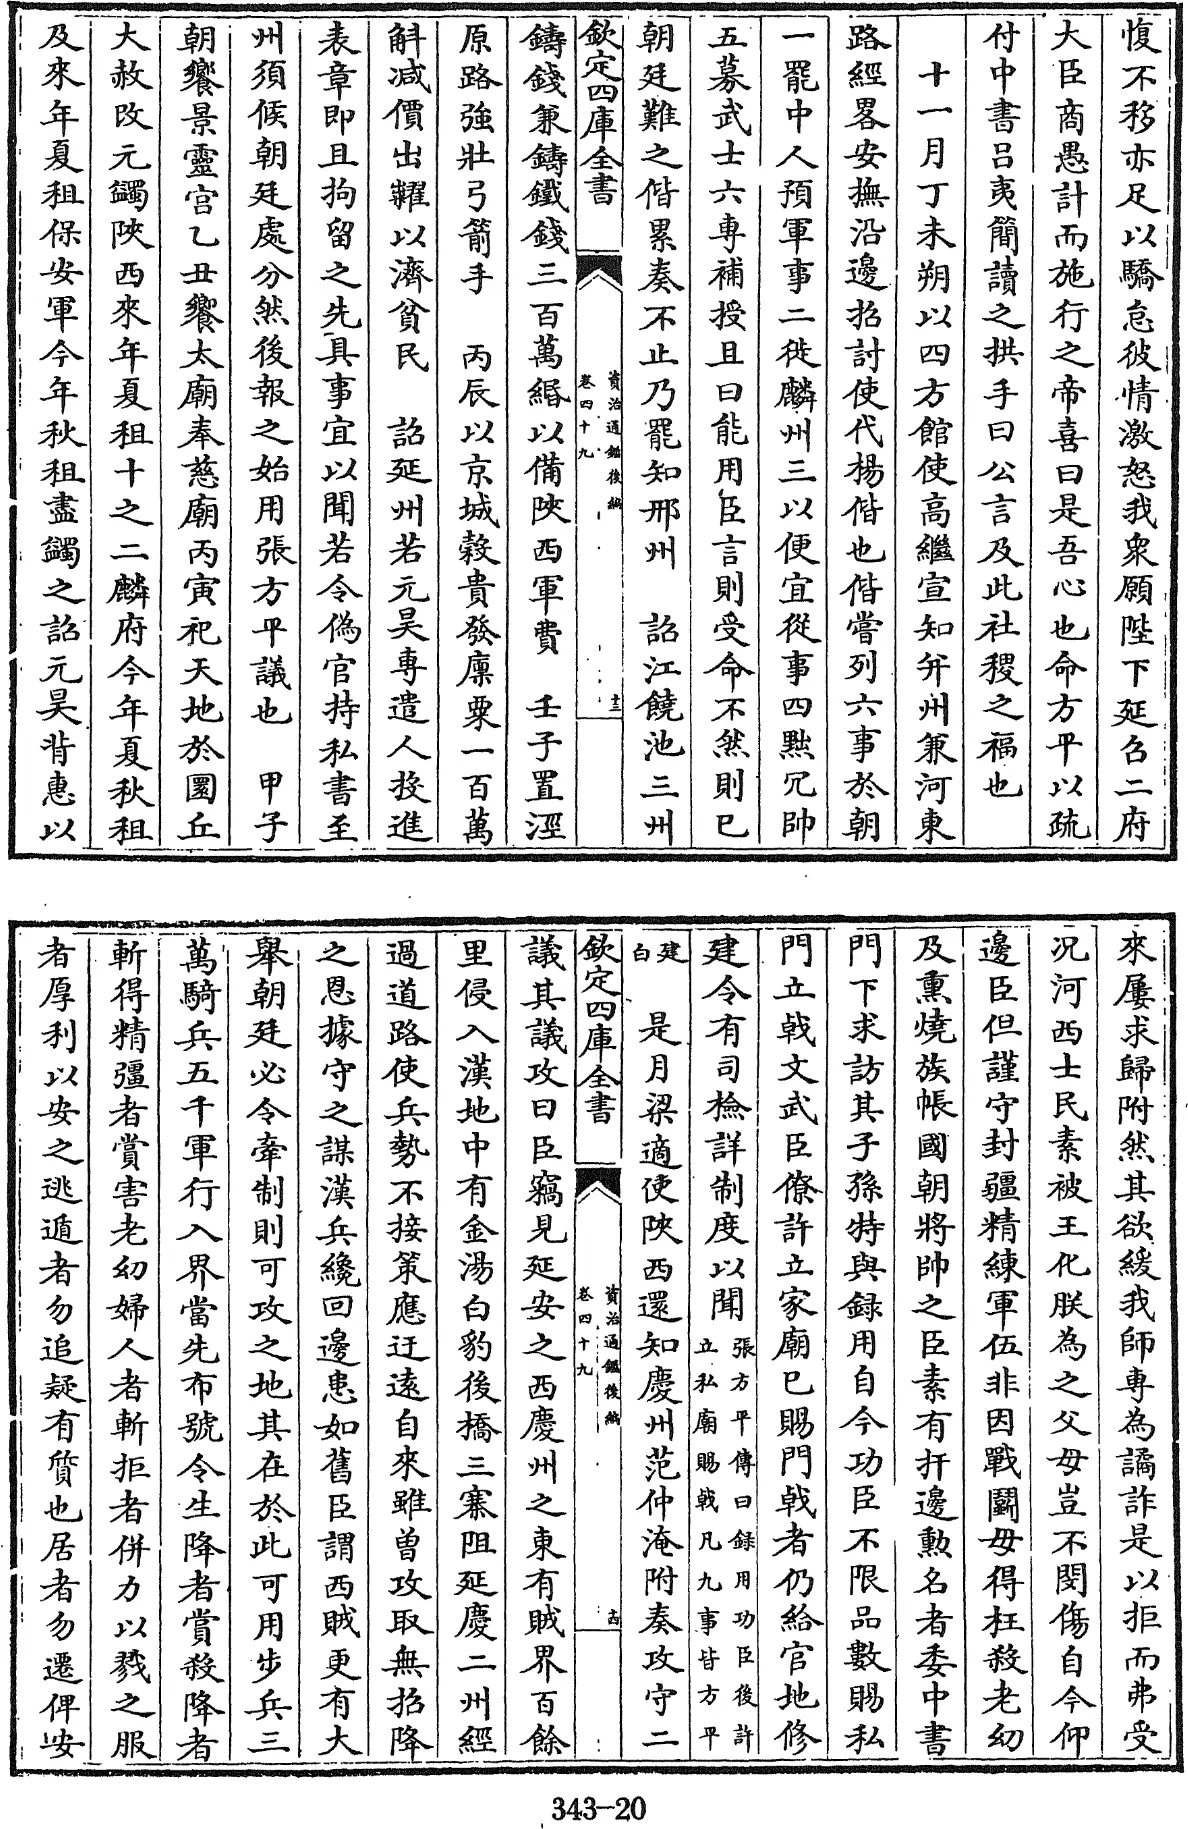 愎不移亦足以驕怠彼情激怒我衆願陛下延召二府
大臣商愚計而施行之帝喜曰是吾心也命方平以疏
付中書吕夷簡讀之拱手曰公言及此社稷之福也
十一月丁未朔以四方館使高繼宣知并州兼河東
路經畧安撫沿邊招討使代楊偕也偕嘗列六事於朝
一罷中人預軍事二徙麟州三以便宜從事四黜冗帥
五募武士六專補授且曰能用臣言則受命不然則已
朝廷難之偕累奏不止乃罷知邢州　詔江饒池三州
欽定四庫全書
資治通鑑後編
卷四十九
十三
鑄錢兼鑄鐵錢三百萬緡以備陜西軍費　壬子置涇
原路強壯弓箭手　丙辰以京城穀貴發廩粟一百萬
斛減價出糶以濟貧民　詔延州若元昊專遣人投進
表章即且拘留之先具事宜以聞若令僞官持私書至
州須候朝廷處分然後報之始用張方平議也　甲子
朝饗景靈宫乙丑饗太廟奉慈廟丙寅祀天地於圜丘
大赦改元蠲陜西來年夏租十之二麟府今年夏秋租
及來年夏租保安軍今年秋租盡蠲之詔元昊背惠以
來屢求歸附然其欲緩我師專為譎詐是以拒而弗受
况河西士民素被王化朕為之父母豈不閔傷自今仰
邊臣但謹守封疆精練軍伍非因戰鬭毋得枉殺老幼
及熏燒族帳國朝將帥之臣素有扞邊勲名者委中書
門下求訪其子孫特與録用自今功臣不限品數賜私
門立戟文武臣僚許立家廟已賜門戟者仍給官地修
建令有司檢詳制度以聞張方平傳曰録用功臣後許
立私廟賜戟凡九事皆方平
建白　是月梁適使陜西還知慶州范仲淹附奏攻守二
欽定四庫全書
資治通鑑後編
卷四十九
十四
議其議攻曰臣竊見延安之西慶州之東有賊界百餘
里侵入漢地中有金湯白豹後橋三寨阻延慶二州經
過道路使兵勢不接策應迂遠自來雖曾攻取無招降
之恩據守之謀漢兵纔回邊患如舊臣謂西賊更有大
舉朝廷必令牽制則可攻之地其在於此可用步兵三
萬騎兵五千軍行入界當先布號令生降者賞殺降者
斬得精彊者賞害老幼婦人者斬拒者併力以戮之服
者厚利以安之逃遁者勿追疑有質也居者勿遷俾安
343-20